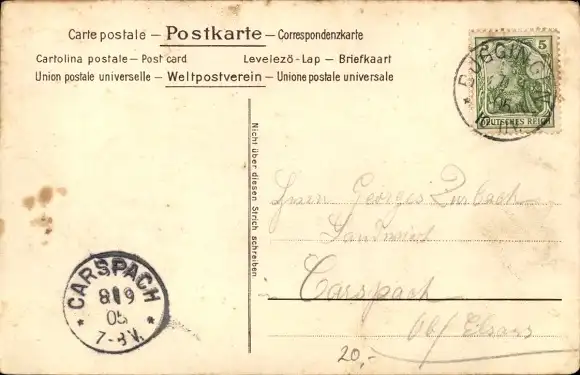 Carte postale – Postkarte – Correspondenzkarte
Cartolina postale – Post card Levelezö-Lap – Briefkaart
Union postale universelle – Weltpostverein – Unione postale universale
5
DEUTSCHES REICH
BUGGINGEN
05
Nicht über diesen Strich schreiben
Herrn Georges Zurbach
Landwirt
Carspach
Ob/ Elsass
CARSPACH
8 9
05
7-8 V.
20,-